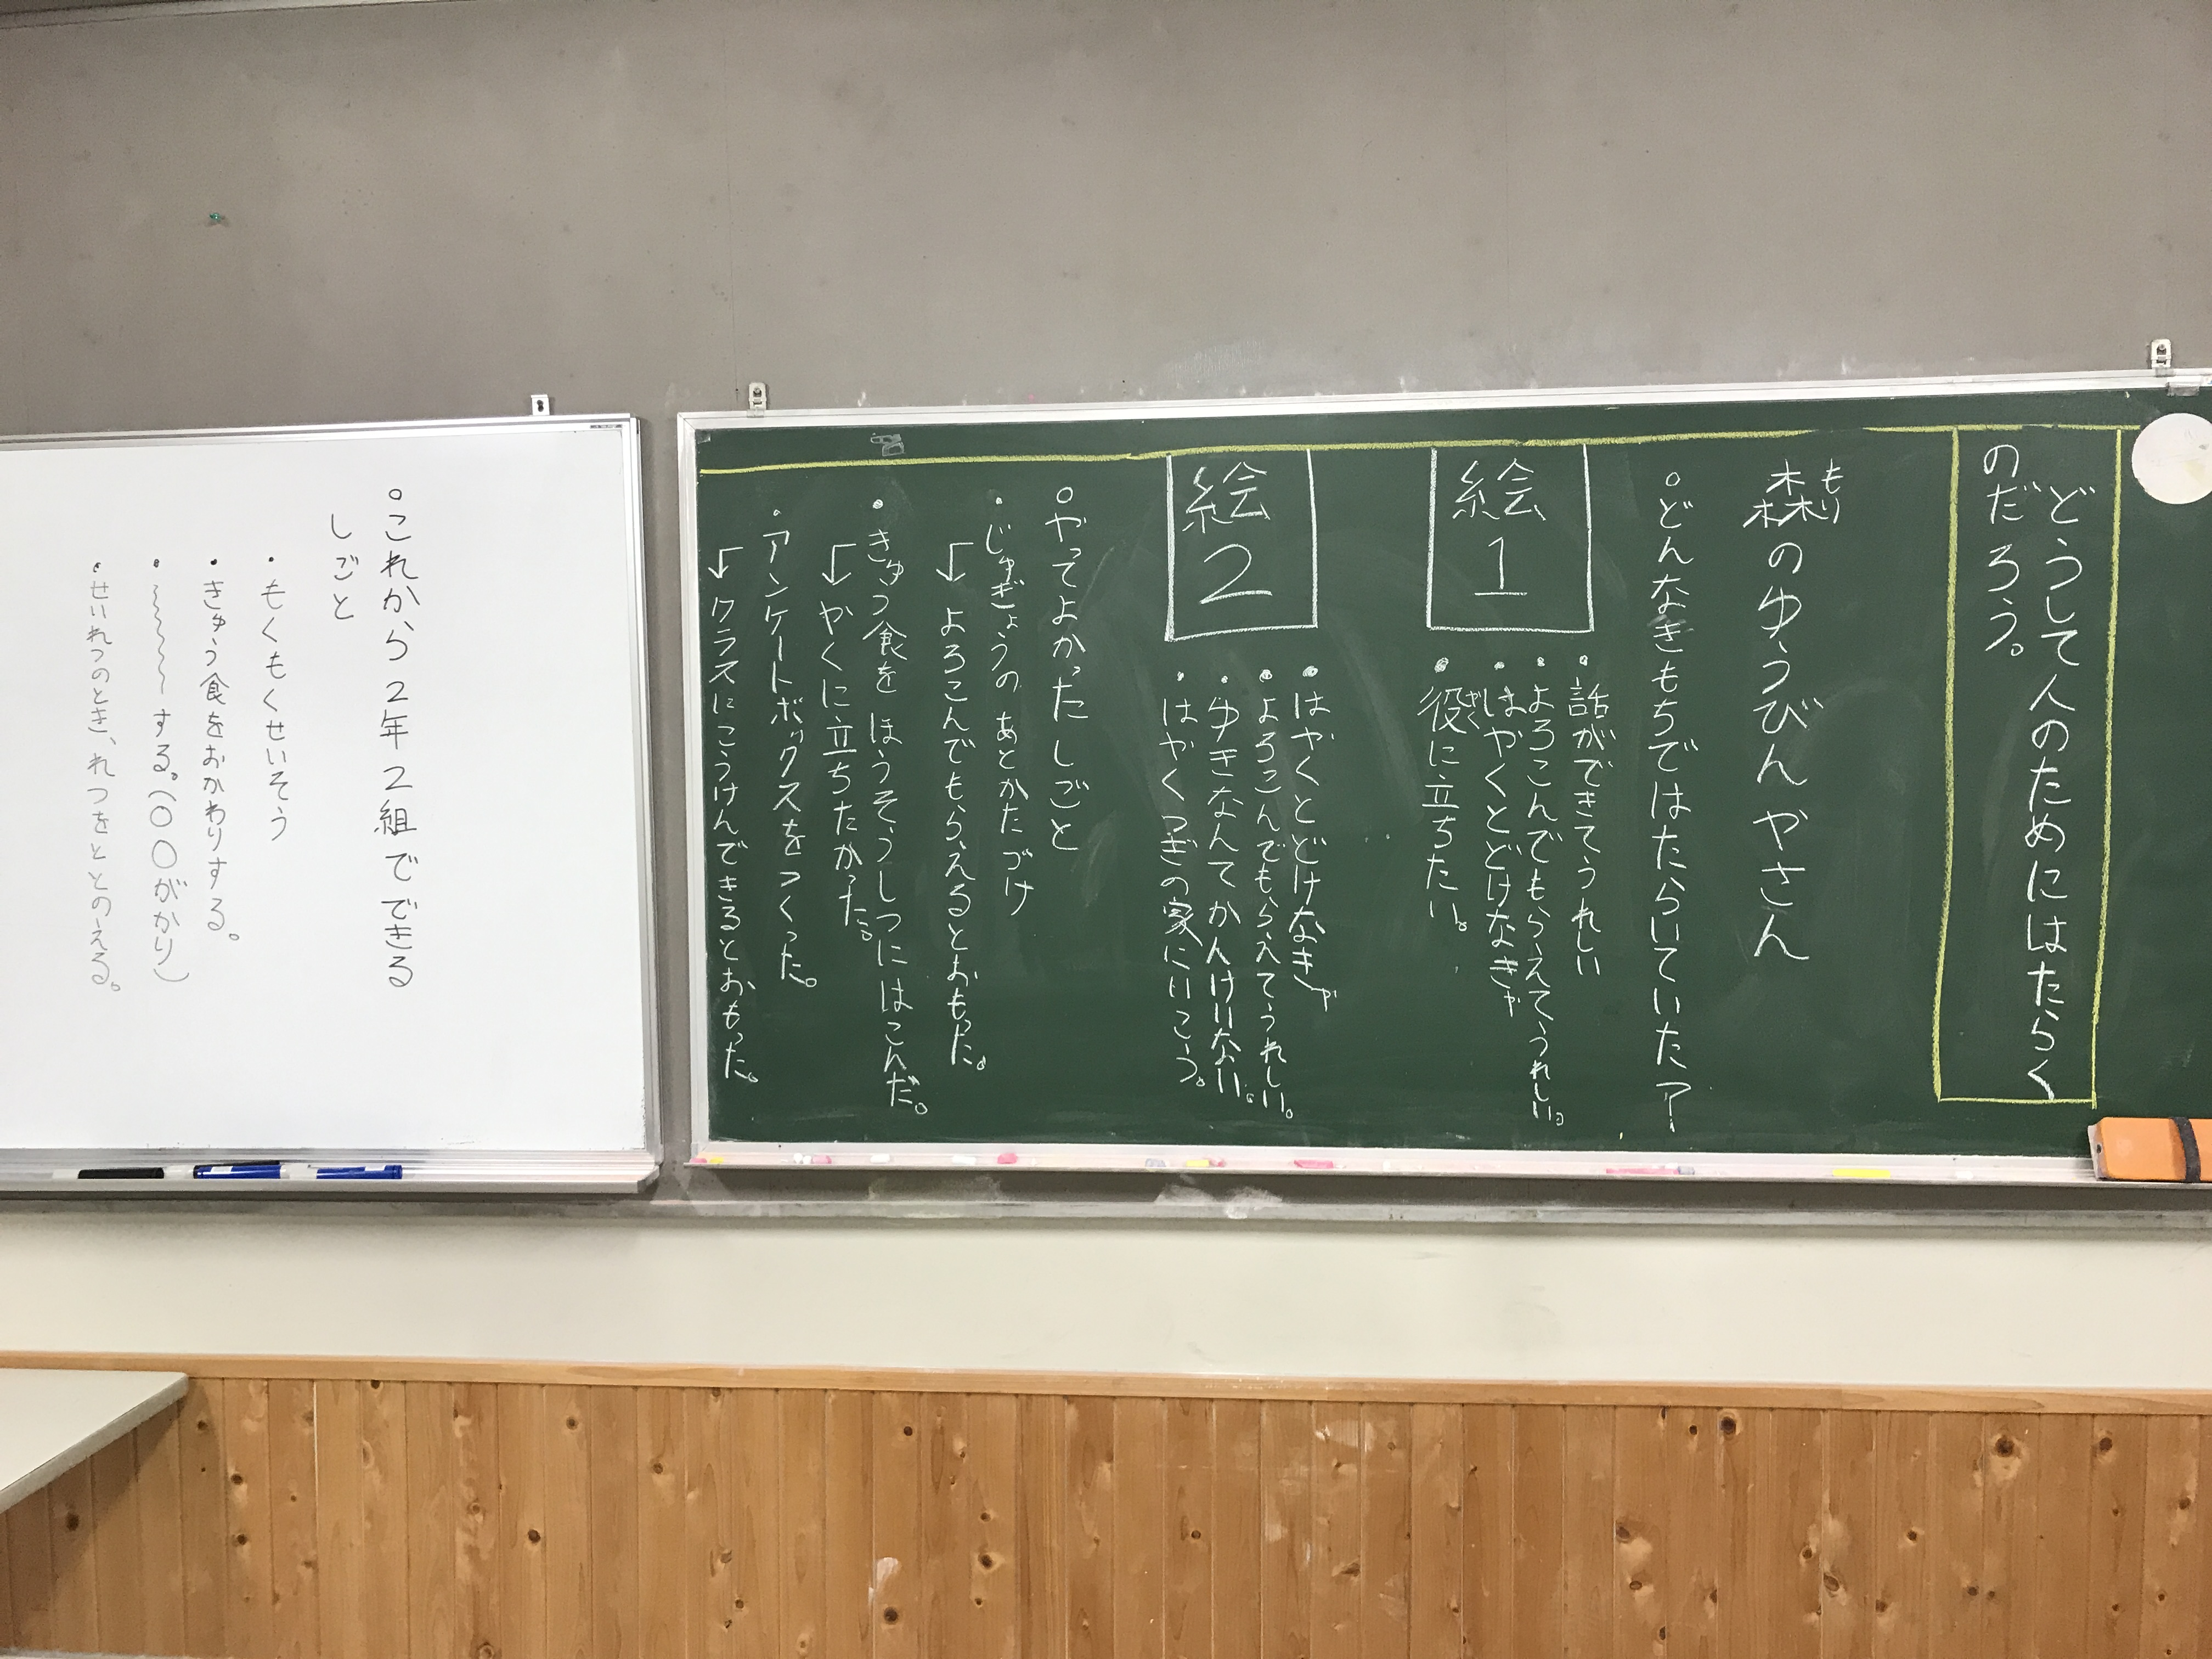 どうして人のためにはたらく
のだろう。
森のゆうびんやさん
もり
○どんなきもちではたらいていた?
絵1
・話ができてうれしい
・よろこんでもらえてうれしい。
・はやくとどけなきゃ
・役に立ちたい。
やく
・はやくとどけなきゃ
・よろこんでもらえてうれしい。
・ゆきなんてかんけいない。
・はやくつぎの家にいこう。
絵2
○やってよかったしごと
・じゅぎょうのあとかたづけ
↓よろこんでもらえるとおもった。
・きゅう食をほうそうしつにはこんだ。
↓やくに立ちたかった。
・アンケートボックスをつくった。
↓クラスにこうけんできるとおもった。
○これから2年2組でできる
しごと
・もくもくせいそう
・きゅう食をおかわりする。
・~~~~~する。(○○がかり)
・せいれつのとき、れつをととのえる。